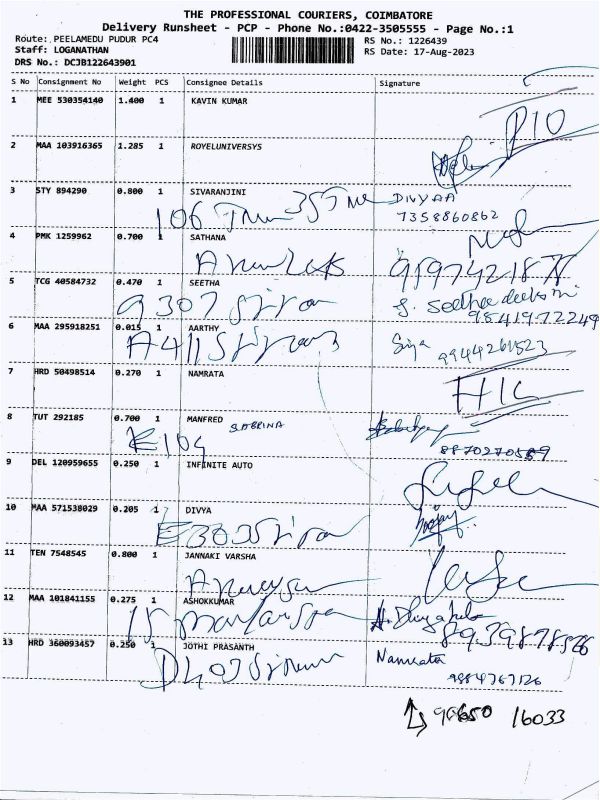 THE PROFESSIONAL COURIERS, COIMBATORE
Delivery Runsheet - PCP - Phone No.:0422-3505555 - Page No.:1
Route: PEELAMEDU PUDUR PC4 RS No.: 1226439
Staff: LOGANATHAN RS Date: 17-Aug-2023
DRS No.: DCJB122643901
S No Consignment No Weight PCS Consignee Details Signature
1 MEE 530354140 1.400 1 KAVIN KUMAR
2 MAA 103916365 1.285 1 ROYELUNIVERSYS
3 STY 894290 0.800 1 SIVARANJINI
DIVYAA
106 7358860862
4 PMK 1259962 0.700 1 SATHANA
5 TCG 40584732 0.470 1 SEETHA
9307
9841972249
6 MAA 295918251 0.015 1 AARTHY
A411 Siya 9944261523
7 HRD 50498514 0.270 1 NAMRATA
8 TUT 292185 0.700 1 MANFRED SABRINA
E104 8870270589
9 DEL 120959655 0.250 1 INFINITE AUTO
10 MAA 571538029 0.205 1 DIVYA
E303
11 TEN 7548545 0.800 1 JANNAKI VARSHA
12 MAA 101841155 0.275 1 ASHOKKUMAR
13 HRD 360093457 0.250 1 JOTHI PRASANTH Namrata
D407 9984767126
98650 16033